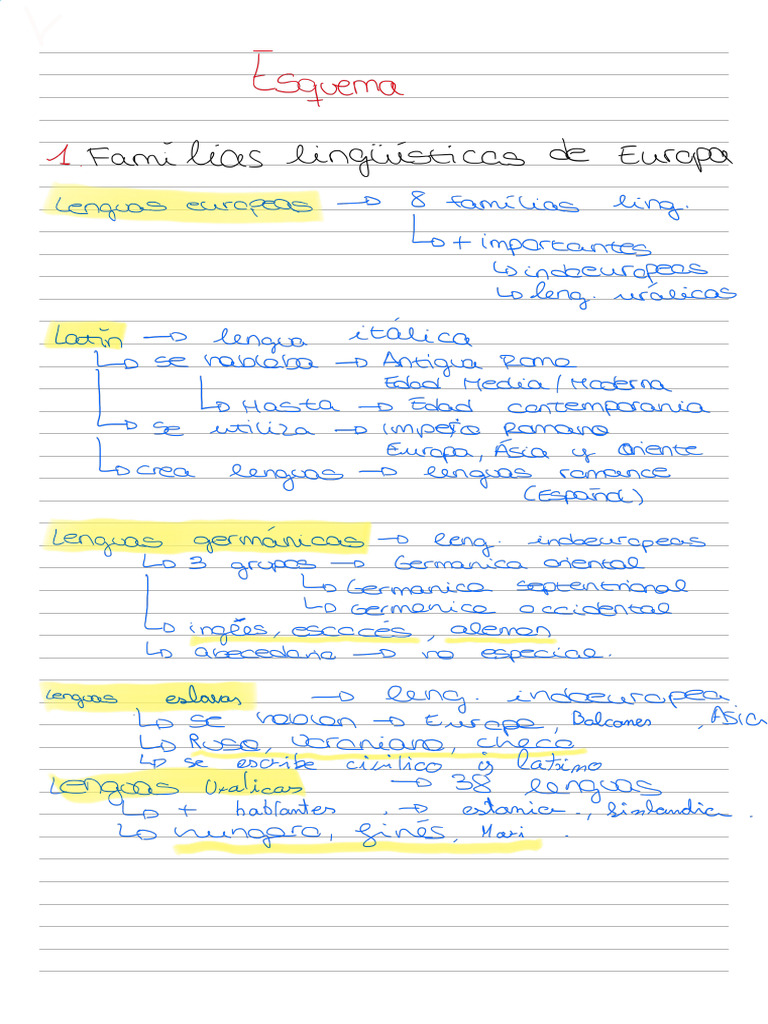 Esquema
1. Famílias lingüísticas de Europa
Lenguas europeas → 8 famílias ling.
↳ + importantes
↳ indoeuropeas
↳ leng. urálicas
Latín → lengua itálica
↳ se hablaba → Antigua Roma
Edad Media / Moderna
↳ Hasta → Edad contemporania
↳ se utiliza → Imperio Romano
Europa, Ásia y Oriente
↳ crea lenguas → lenguas romance
(Español)
Lenguas germánicas → leng. indoeuropeas
↳ 3 grupos → Germanica oriental
↳ Germanica septentrional
↳ Germanica occidental
↳ inglés, escocés, aleman
↳ abecedario → no especial.
Lenguas eslavas → leng. indoeuropea
↳ se hablan → Europa, Balcanes, Asia
↳ Ruso, Ucraniano, checo
↳ se escribe cirilico y latino
Lenguas Uralicas → 38 lenguas
↳ + hablantes → estania, finlandia.
↳ hungara, finés, Mari.